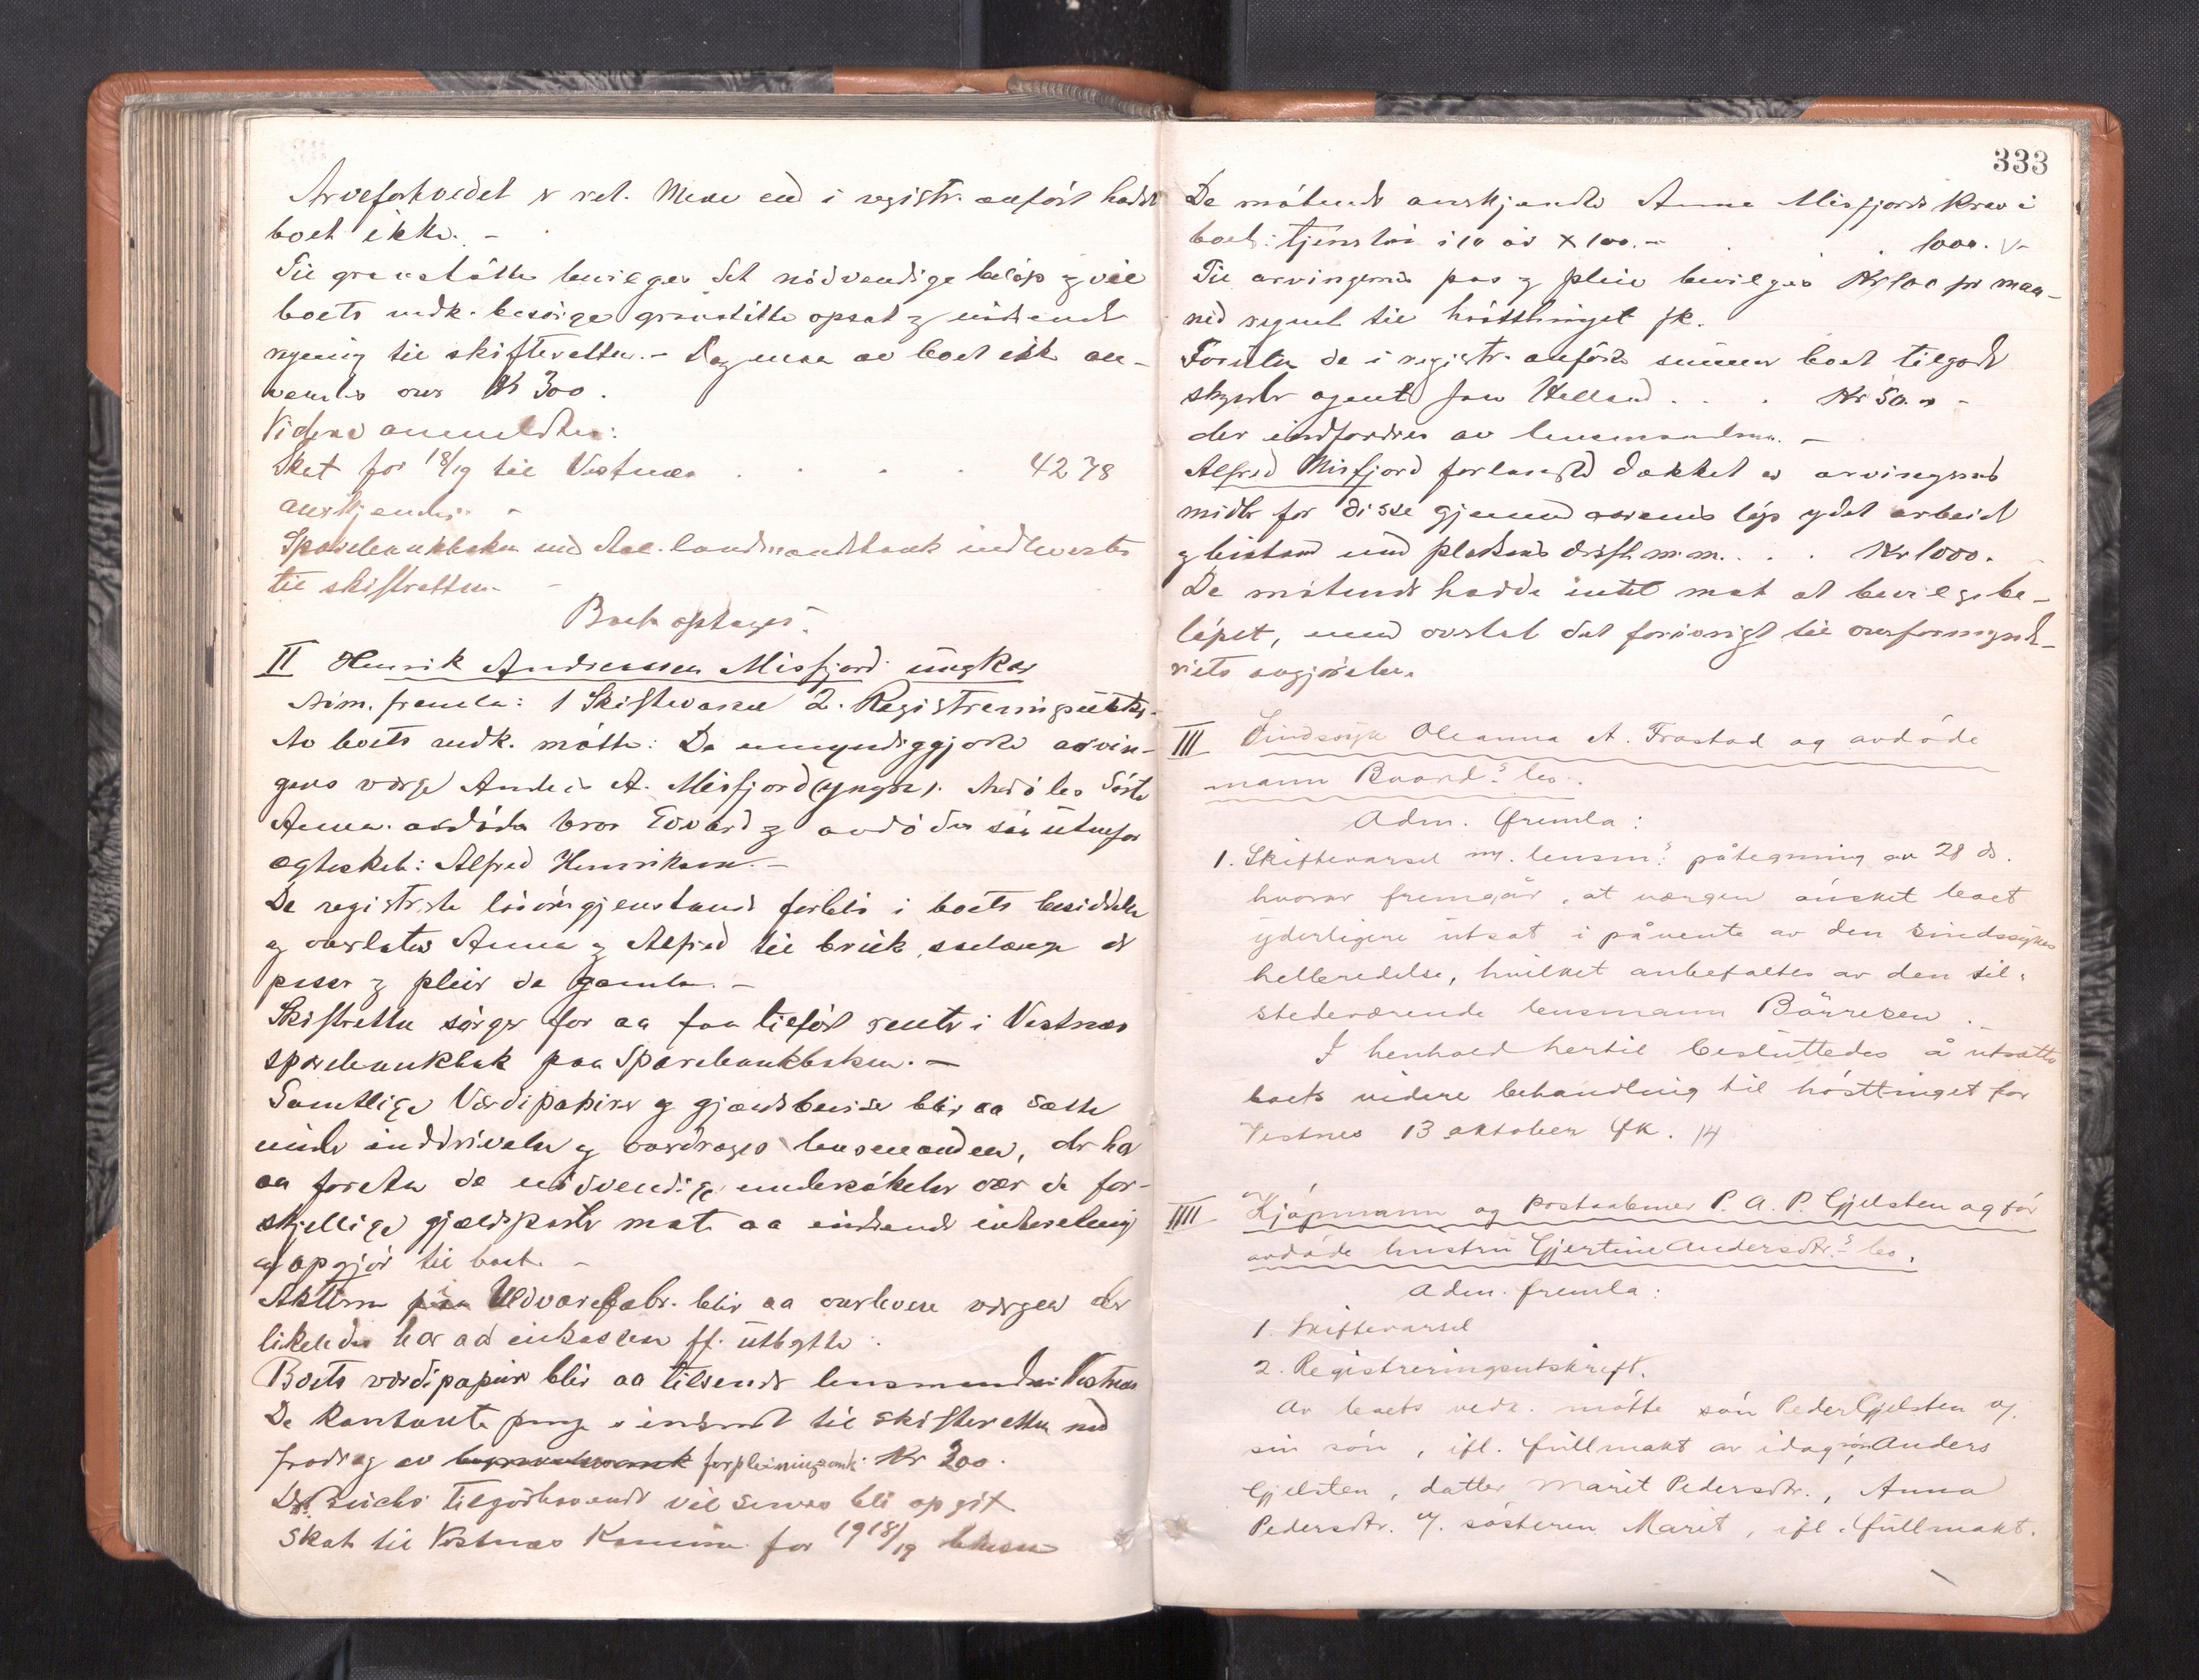 Arveforholdet er ret. Mere end i registr. anført hadde
boet ikke. –
Til gravstøtte bevilges det nødvendige beløp og vil
boets vedk. besørge gravstøtte opsat og indsende
regning til skifteretten. – Dog maa av boet ikke an-
vendes over Kr 300.
Videre anmeldtes:
Skat for 18/19 til Vestnes . . . . 42 78
anerkjendes. –
Sparebankboken med Aal. landmandsbank indleveres
til skifteretten. –
Boet optages.
II Henrik Andreassen Misfjord ungkar
Adm. fremla: 1 Skiftevarsel 2. Registreringsutskr.
Av boets vedk. møtte: De umyndiggjorte arvin-
gers værge Anders A. Misfjord (yngre). Avdødes søster
Anna. avdødes bror Edvard og avdødes søn utenfor
egteskab: Alfred Henriksen. –
De registrerte løsøregjenstande forblir i boets besiddelse
og overlates Anna og Alfred til bruk, saalænge de
passer og pleier de gamle. –
Skifteretten sørger for aa faa tilført renter i Vestnes
sparebankbok paa Sparebankboken. –
Samtlige Værdipapirer og gjældsbeviser blir aa sætte
under inddrivelse og overdrages lensmanden, der har
aa foreta de nødvendige undersøkelser over de for-
skjellige gjældsposter mot aa indsende indberetning
og opgjør til boet. –
Aktien i Uldvarefabr. blir aa overlevere værgen der
likeledes har aa inkassere ff. utbytte.
Boets værdipapirer blir aa tilsende lensmanden i Vestnes
De kontante penge er indsendt til skifteretten med
fradrag av forpleiningsomk. Kr 200.
Dr. tilgodehavende vil senere bli opgit
Skat til Vestnes Kommune for 1918/19
333
De møtende anerkjendte Anna Misfjords krav i
boet: tjenerløn i 10 år x 100.– . . 1000. –
Til arvingernes pas og pleie bevilges Kr 100 pr maa-
ned regnet til høsttinget fk.
Foruten de i registr. anførte summer boet tilgode
skylder agent Helland . . . Kr 50.–
der indfordres av lensmanden. –
Alfred Misfjord forlangte dækket av arvingernes
midler for disse gjennem aarenes løp ydet arbeid
og bistand med pladsens drift m.m. . . . Kr 1000.
De møtende hadde intet mot at bevilge be-
løpet, men overlot det forøvrigt til overformynde-
riets avgjørelse.
III Sindssyk Oleanna A. Frostad og avdøde
mann Baards bo.
Adm. fremla:
1. Skiftevarsel m. lensm.s påtegning av 28 ds.
hvorav fremgår, at værgen ønsket boet
yderligere utsat i påvente av den sindssykes
helbredelse, hvilket anbefaltes av den til-
stedeværende lensmann Børresen. –
I henhold hertil besluttedes å utsætte
boets videre behandling til høsttinget for
Vestnes 13 oktober fk. 14
IIII Kjøpmann og postaabner P. A. P. Gjelsten og før
avdøde hustru Gjertine Andersdtr.s bo.
Adm. fremla:
1. Skiftevarsel
2. Registreringsutskrift.
Av boets vedk. møtte søn Peder Gjelsten og
sin søn, ifl. fullmakt av idag, søn Anders
Gjelsten, datter Marit Pedersdtr., Anna
Pedersdtr. og søsteren Marit, ifl. fullmakt.